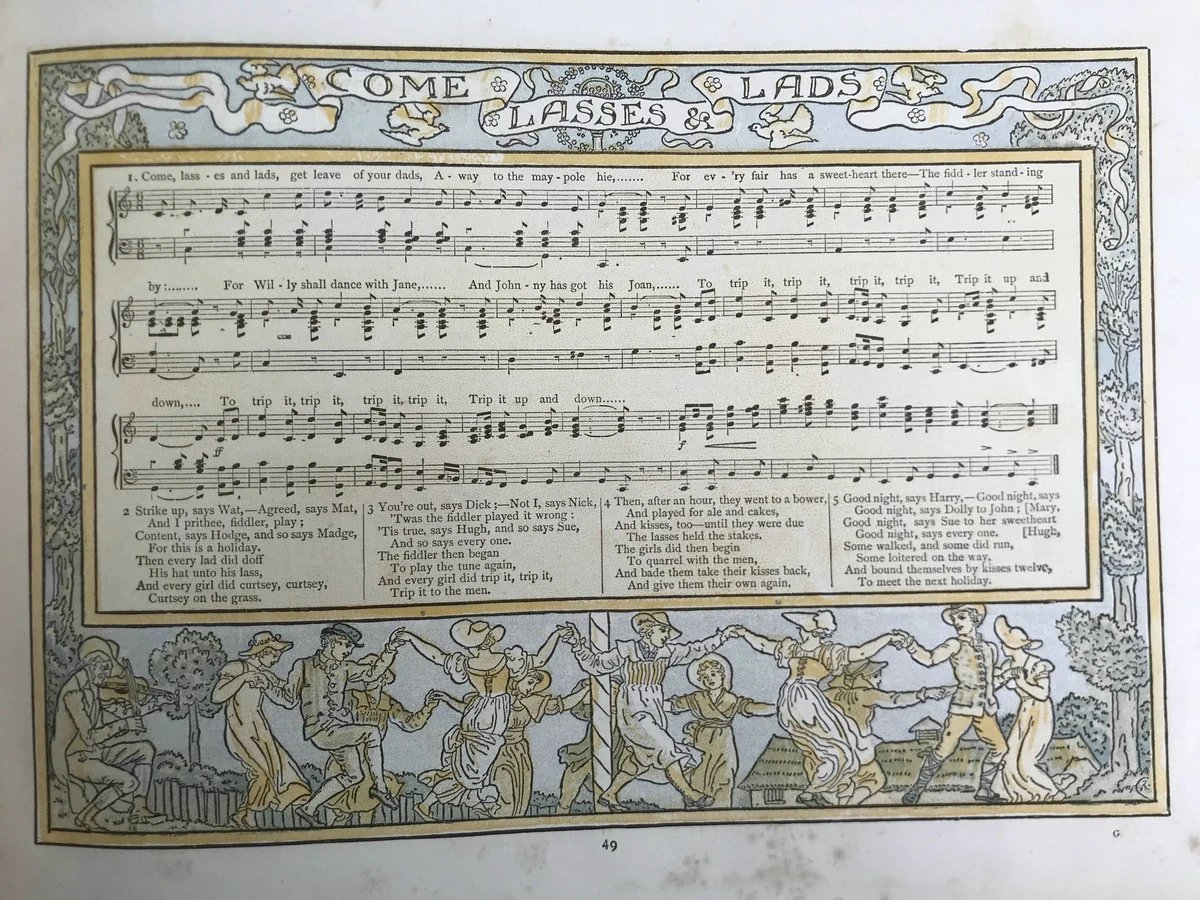 COME LASSES & LADS
1. Come, lass - es and lads, get leave of your dads, A - way to the may - pole hie,....... For ev - 'ry fair has a sweet-heart there—The fidd - ler stand - ing
by:........ For Wil - ly shall dance with Jane,...... And John - ny has got his Joan,...... To trip it, trip it, trip it, trip it, Trip it up and
down,.... To trip it, trip it, trip it, trip it, Trip it up and down......
ff
f
2 Strike up, says Wat,—Agreed, says Mat,
And I prithee, fiddler, play ;
Content, says Hodge, and so says Madge,
For this is a holiday.
Then every lad did doff
His hat unto his lass,
And every girl did curtsey, curtsey,
Curtsey on the grass.
3 You're out, says Dick ;—Not I, says Nick,
'Twas the fiddler played it wrong :
'Tis true, says Hugh, and so says Sue,
And so says every one.
The fiddler then began
To play the tune again,
And every girl did trip it, trip it,
Trip it to the men.
4 Then, after an hour, they went to a bower,
And played for ale and cakes,
And kisses, too—until they were due
The lasses held the stakes.
The girls did then begin
To quarrel with the men,
And bade them take their kisses back,
And give them their own again.
5 Good night, says Harry,—Good night, says
Good night, says Dolly to John ; [Mary,
Good night, says Sue to her sweetheart
Good night, says every one. [Hugh,
Some walked, and some did run,
Some loitered on the way,
And bound themselves by kisses twelve,
To meet the next holiday.
49
G